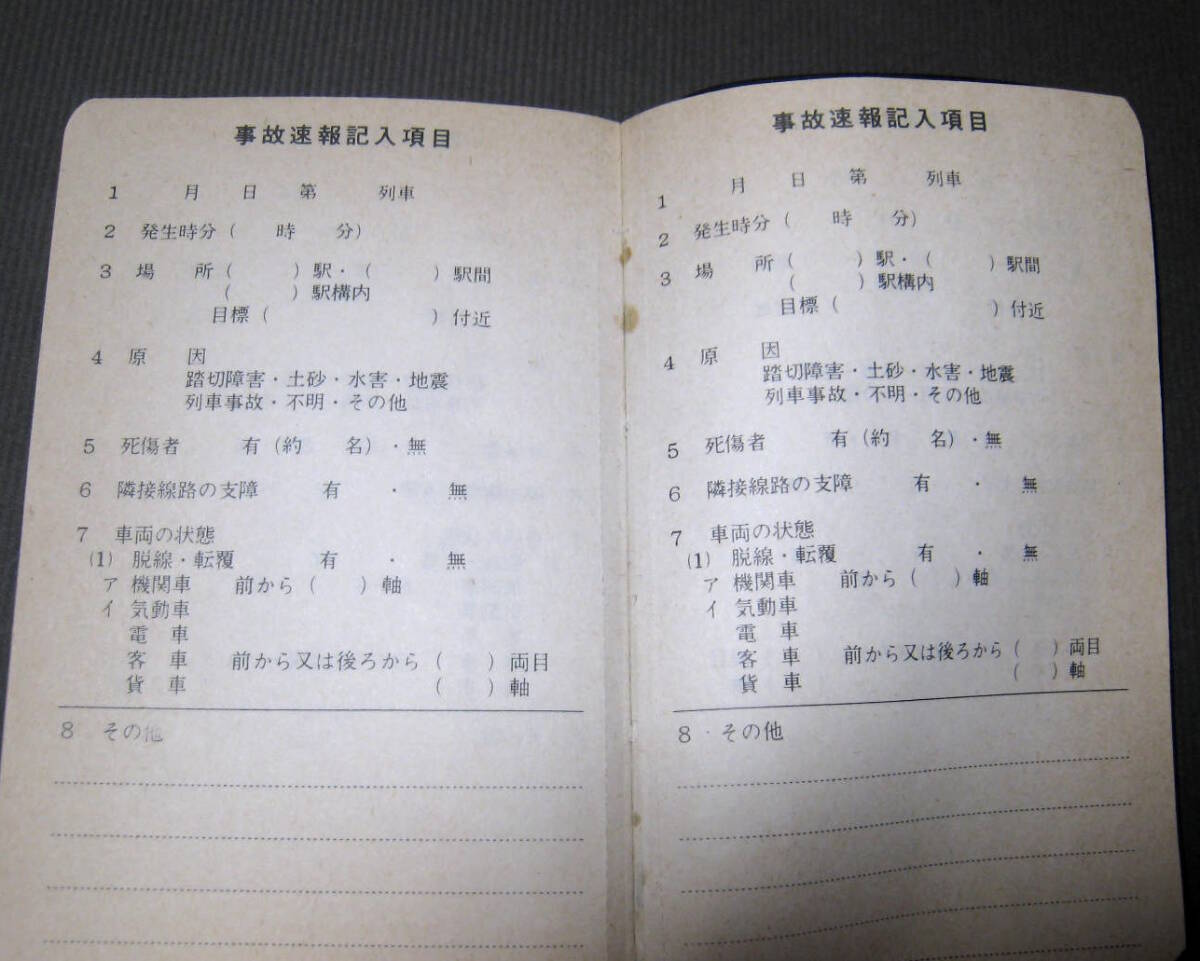 事故速報記入項目
1 月 日 第 列車
2 発生時分( 時 分)
3 場 所( )駅・( )駅間
( )駅構内
目標( )付近
4 原 因
踏切障害・土砂・水害・地震
列車事故・不明・その他
5 死傷者 有(約 名)・無
6 隣接線路の支障 有 ・ 無
7 車両の状態
(1) 脱線・転覆 有 ・ 無
ア 機関車 前から( )軸
イ 気動車
電 車
客 車 前から又は後ろから( )両目
貨 車 ( )軸
8 その他
事故速報記入項目
1 月 日 第 列車
2 発生時分( 時 分)
3 場 所( )駅・( )駅間
( )駅構内
目標( )付近
4 原 因
踏切障害・土砂・水害・地震
列車事故・不明・その他
5 死傷者 有(約 名)・無
6 隣接線路の支障 有 ・ 無
7 車両の状態
(1) 脱線・転覆 有 ・ 無
ア 機関車 前から( )軸
イ 気動車
電 車
客 車 前から又は後ろから( )両目
貨 車 ( )軸
8 その他